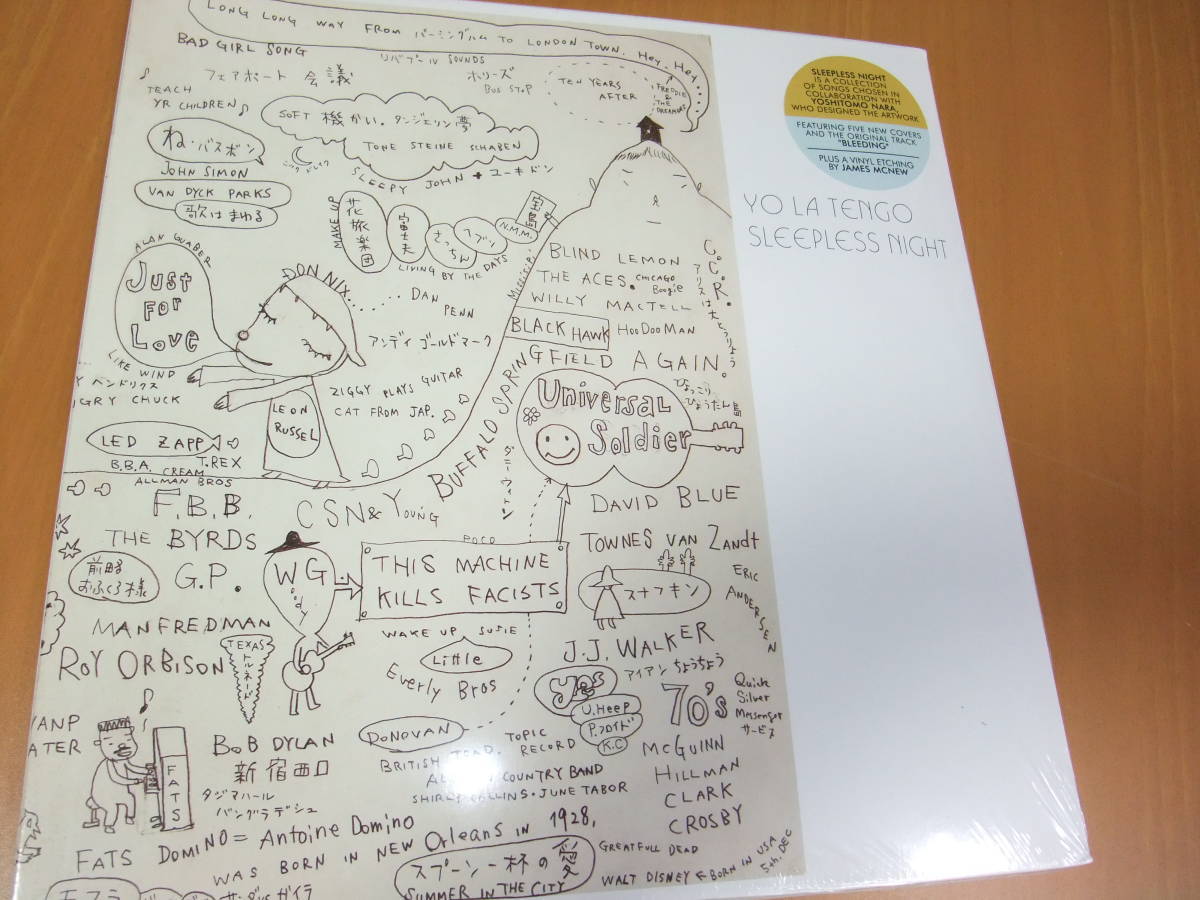 LONG LONG WAY FROM バーミングハム TO LONDON TOWN. HEY, HEY....
BAD GIRL SONG
リバプール SOUNDS
フェアポート 会議
ホリーズ
BUS STOP
TEN YEARS
AFTER
FREDDIE
&
THE
DREAMERS
TEACH
YR CHILDREN
SOFT 機かい。タンジェリン夢
TONE STEINE SCHABEN
ね・バスボン
JOHN SIMON
SLEEPY JOHN + ユーキドン
VAN DYCK PARKS
歌はまわる
MAKE UP
花旅楽団
富士夫
さっちん
N.M.M.
宝島
LIVING BY THE DAYS
ALAN GUABER
Just
FOR
Love
DON NIX......
DAN
PENN
アンディ ゴールドマーク
BLIND LEMON
THE ACES.
CHICAGO
Boogie
WILLY MACTELL
BLACK HAWK
HOODOO MAN
C.C.R.
アリスは大とうりょう
BUFFALO SPRINGFIELD AGAIN.
LIKE WIND
ヘンドリクス
GRY CHUCK
LEON
RUSSEL
ZIGGY PLAYS GUITAR
CAT FROM JAP.
Universal
Soldier
ひょっこり
ひょうたん島
LED ZAPP
B.B.A. CREAM T.REX
ALLMAN BROS
F.B.B.
CSN& YOUNG
ダニーウィトン
DAVID BLUE
THE BYRDS
POCO
TOWNES VAN Zandt
前略
おふくろ様
G.P.
WG
Woody
THIS MACHINE
KILLS FACISTS
スナフキン
ERIC
ANDERSEN
MANFREDMAN
WAKE UP SUSIE
J.J. WALKER
ROY ORBISON
TEXAS
トルネード
Little
Everly Bros
アイアンちょうちょう
yes
U.HEEP
P.フロイド
K.C
70's
Quick
Silver
Messenger
サービス
VANP
ATER
FATS
BoB DYLAN
新宿西口
DONOVAN
TOPIC
RECORD
BRITISH TRAD.
COUNTRY BAND
SHIRLEY COLLINS・JUNE TABOR
McGUINN
HILLMAN
CLARK
CROSBY
タジマハール
バングラデシュ
FATS DOMINO = Antoine Domino
WAS BORN IN NEW Orleans IN 1928,
スプーン一杯の愛
SUMMER IN THE CITY
GREATFULL DEAD
WALT DISNEY ← BORN IN USA
5th. DEC
SLEEPLESS NIGHT
IS A COLLECTION
OF SONGS CHOSEN IN
COLLABORATION WITH
YOSHITOMO NARA,
WHO DESIGNED THE ARTWORK
FEATURING FIVE NEW COVERS
AND THE ORIGINAL TRACK
"BLEEDING"
PLUS A VINYL ETCHING
BY JAMES MCNEW
YO LA TENGO
SLEEPLESS NIGHT